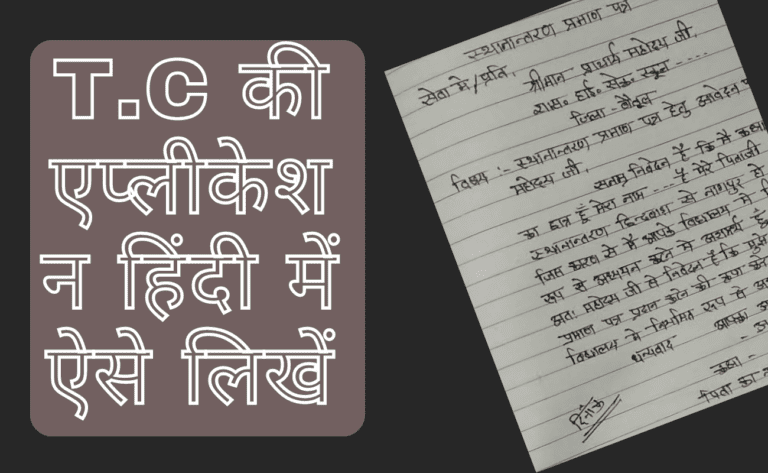 T.C की
एप्लीकेश
न हिंदी में
ऐसे लिखें
स्थानान्तरण प्रमाण पत्र
सेवा में/प्रति,
श्रीमान - प्राचार्य महोदय जी,
शास. हाई. सेके. स्कूल - ....
जिला - बैतूल
विषय :- स्थानान्तरण प्रमाण पत्र हेतु आवेदन प
महोदय जी,
सनम्र निवेदन है कि मैं कक्षा
का छात्र हूँ मेरा नाम - ... है मेरे पिताजी
स्थानान्तरण छिन्दवाडा से नागपुर हो
जिस कारण से मैं आपके विद्यालय में नि
रूप से अध्ययन करने में असमर्थ हूँ
अतः महोदय जी से निवेदन है कि मुझे
प्रमाण पत्र प्रदान करने की कृपा करे
विद्यालय में नियमित रूप से अ
धन्यवाद
आपका आ
कक्षा -
पिता का ना
दिनांक